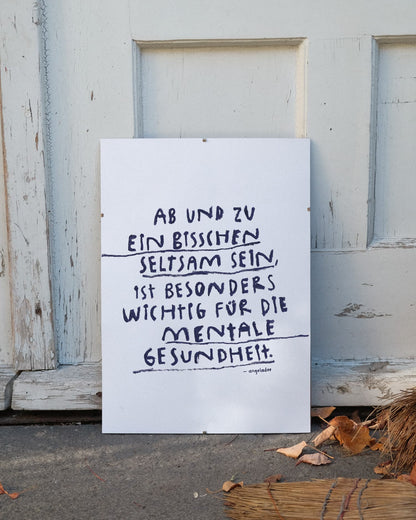 AB UND ZU
EIN BISSCHEN
SELTSAM SEIN,
IST BESONDERS
WICHTIG FÜR DIE
MENTALE
GESUNDHEIT.
– angeladoe